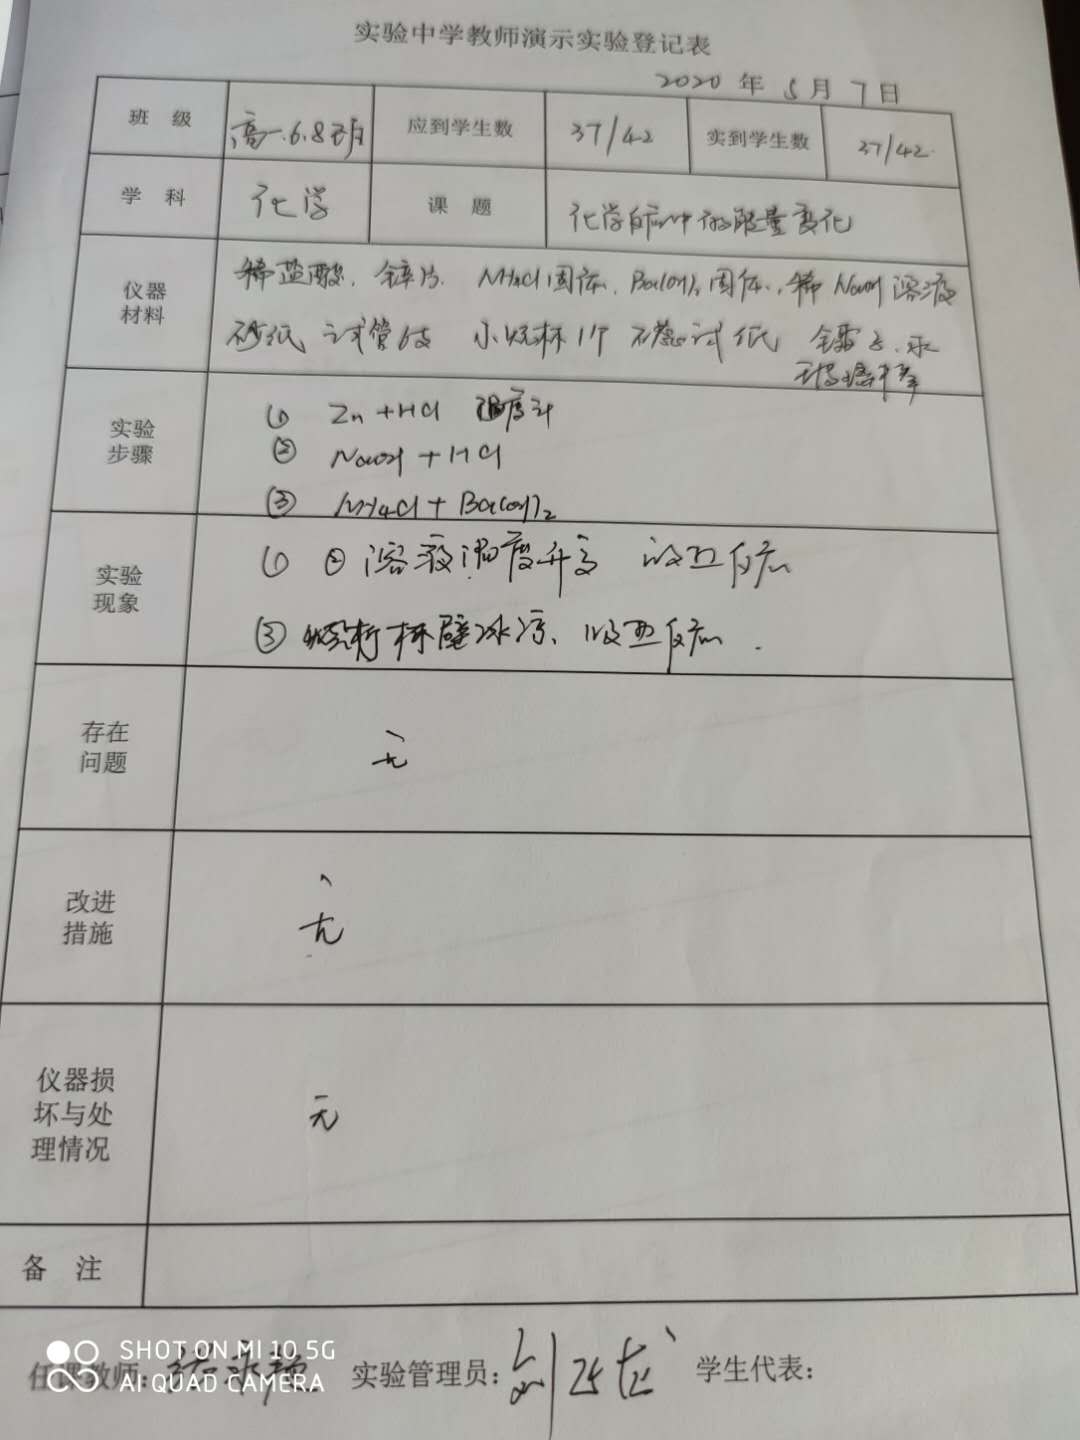 实验中学教师演示实验登记表
2020 年 5 月 7 日
班 级 高一.6.8班 应到学生数 37/42 实到学生数 37/42.
学 科 化学 课 题 化学反应中的能量变化
仪器 稀盐酸、锌片、NH4Cl固体、Ba(OH)2固体、稀NaOH溶液
材料 砂纸 试管6支 小烧杯1个 试纸 镊子、
实验 ① Zn+HCl 温度计
步骤 ② NaOH+HCl
③ NH4Cl+Ba(OH)2
实验 ① ②溶液温度升高 反应
现象 ③ 杯壁冰凉、吸热反应.
存在
问题 无
改进
措施 无
仪器损
坏与处 无
理情况
备 注
任课教师: 实验管理员: 学生代表:
SHOT ON MI 10 5G
AI QUAD CAMERA